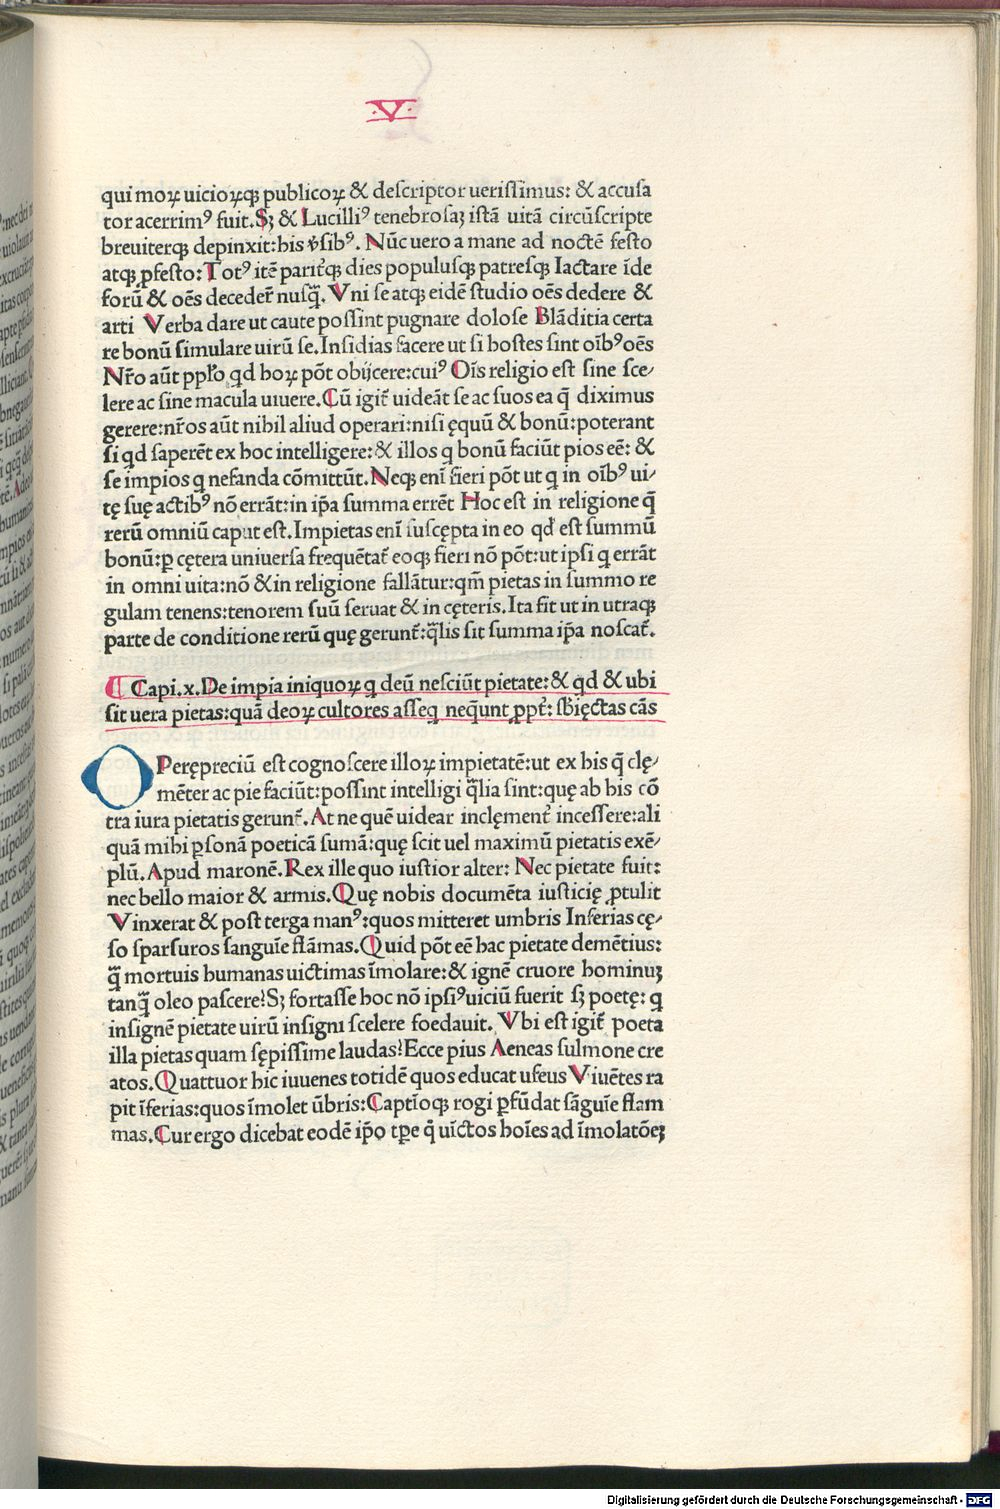 ·V·
qui moꝝ uicioꝝqꝫ publicoꝝ & deſcriptor ueriſſimus: & accuſa
tor acerrimꝰ fuit. Sꝫ & Lucilliꝰ tenebroſaꝫ iſtā uitā circūſcripte
breuiterqꝫ depinxit: his ꝟſibꝰ. Nūc uero a mane ad noctē feſto
atqꝫ ꝓfeſto: Totꝰ itē parit̉qꝫ dies populuſqꝫ patreſqꝫ Iactare īde
forū & oēs deceder̄ nuſq̄. Vni ſe atqꝫ eidē ſtudio oēs dedere &
arti Verba dare ut caute poſſint pugnare doloſe Blāditia certa
re bonū ſimulare uirū ſe. Inſidias facere ut ſi hoſtes ſint oībꝰ oēs
Nr̄o aūt ppl̄o qd hoꝝ pōt obijcere: cuiꝰ Oīs religio eſt ſine ſce⸗
lere ac ſine macula uiuere. Cū igit̄ uideāt ſe ac ſuos ea q̄ diximus
gerere: nr̄os aūt nihil aliud operari: niſi ęquū & bonū: poterant
ſi qd ſaperēt ex hoc intelligere: & illos q bonū faciūt pios eē: &
ſe impios q nefanda cōmittūt. Neqꝫ enī fieri pōt ut q in oībꝰ ui⸗
tę ſuę actibꝰ nō errāt: in ip̄a ſumma errēt Hoc eſt in religione q̄
rerū omniū caput eſt. Impietas enī ſuſcępta in eo qd eſt ſummū
bonū: ꝑ cętera uniuerſa frequētat̄ eoqꝫ fieri nō pōt: ut ipſi q errāt
in omni uita: nō & in religione fallātur: qm̄ pietas in ſummo re
gulam tenens: tenorem ſuū ſeruat & in cęteris. Ita fit ut in utraqꝫ
parte de conditione rerū quę gerunt̄: q̄lis ſit ſumma ip̄a noſcat̄.
¶ Capi. x. De impia iniquoꝝ q deū neſciūt pietate: & qd & ubi
ſit uera pietas: quā deoꝝ cultores aſſeq neq̄unt ꝓpt̄: ſb̄ięctas cās
OPerępreciū eſt cognoſcere illoꝝ impietatē: ut ex his q̄ clę⸗
mēter ac pie faciūt: poſſint intelligi q̄lia ſint: quę ab his cō
tra iura pietatis gerunt̄. At ne quē uidear inclęment̄ inceſſere: ali
quā mihi ꝑſonā poeticā ſumā: quę ſcit uel maximū pietatis exē⸗
plū. Apud maronē. Rex ille quo iuſtior alter: Nec pietate fuit:
nec bello maior & armis. Quę nobis documēta iuſticię ꝓtulit
Vinxerat & poſt terga manꝰ: quos mitteret umbris Inferias cę⸗
ſo ſparſuros ſanguīe flāmas. Quid pōt eē hac pietate demētius:
q̄ mortuis humanas uictimas īmolare: & ignē cruore hominuꝫ
tanq̄ oleo paſcere? Sꝫ fortaſſe hoc nō ipſiꝰ uiciū fuerit ſꝫ poetę: q
inſignē pietate uirū inſigni ſcelere foedauit. Vbi eſt igit̄ poeta
illa pietas quam ſępiſſime laudas? Ecce pius Aeneas ſulmone cre
atos. Quattuor hic iuuenes totidē quos educat ufeus Viuētes ra
pit īferias: quos īmolet ūbris: Captīoqꝫ rogi ꝑfūdat ſāguīe flam
mas. Cur ergo dicebat eodē ip̄o tꝑe q̄ uīctos hoīes ad īmolatōeꝫ
Digitalisierung gefördert durch die Deutsche Forschungsgemeinschaft - DFG